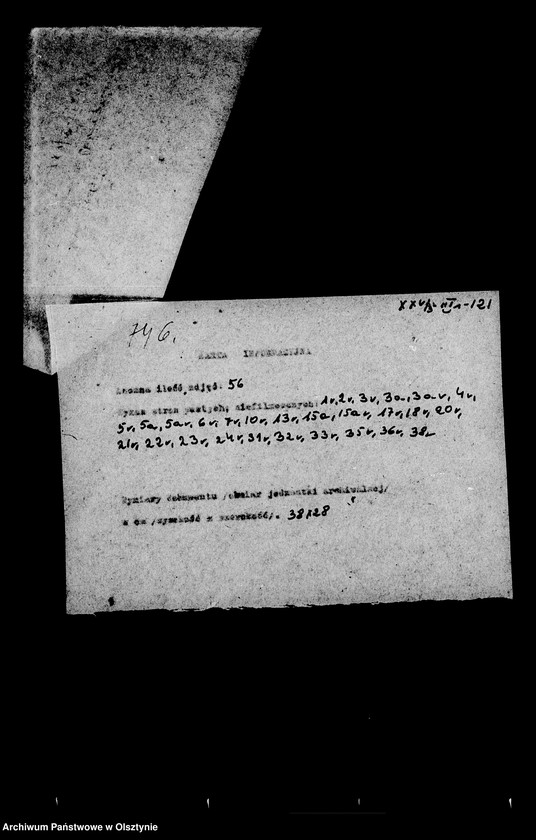 -121
746.
KARTA INFORMACYJNA
Łączna ilość zdjęć: 56
Wykaz stron pustych, niefilmowanych: 1v, 2v, 3v, 3a, 3av, 4v,
5v, 5a, 5av, 6v, 7v, 10v, 13v, 15a, 15av, 17v, 18v, 20v,
21v, 22v, 23v, 24v, 31v, 32v, 33v, 35v, 36v, 38v
Wymiary dokumentu /obmiar jednostki archiwalnej/
w cm /wysokość x szerokość/. 38x28
Archiwum Państwowe w Olsztynie